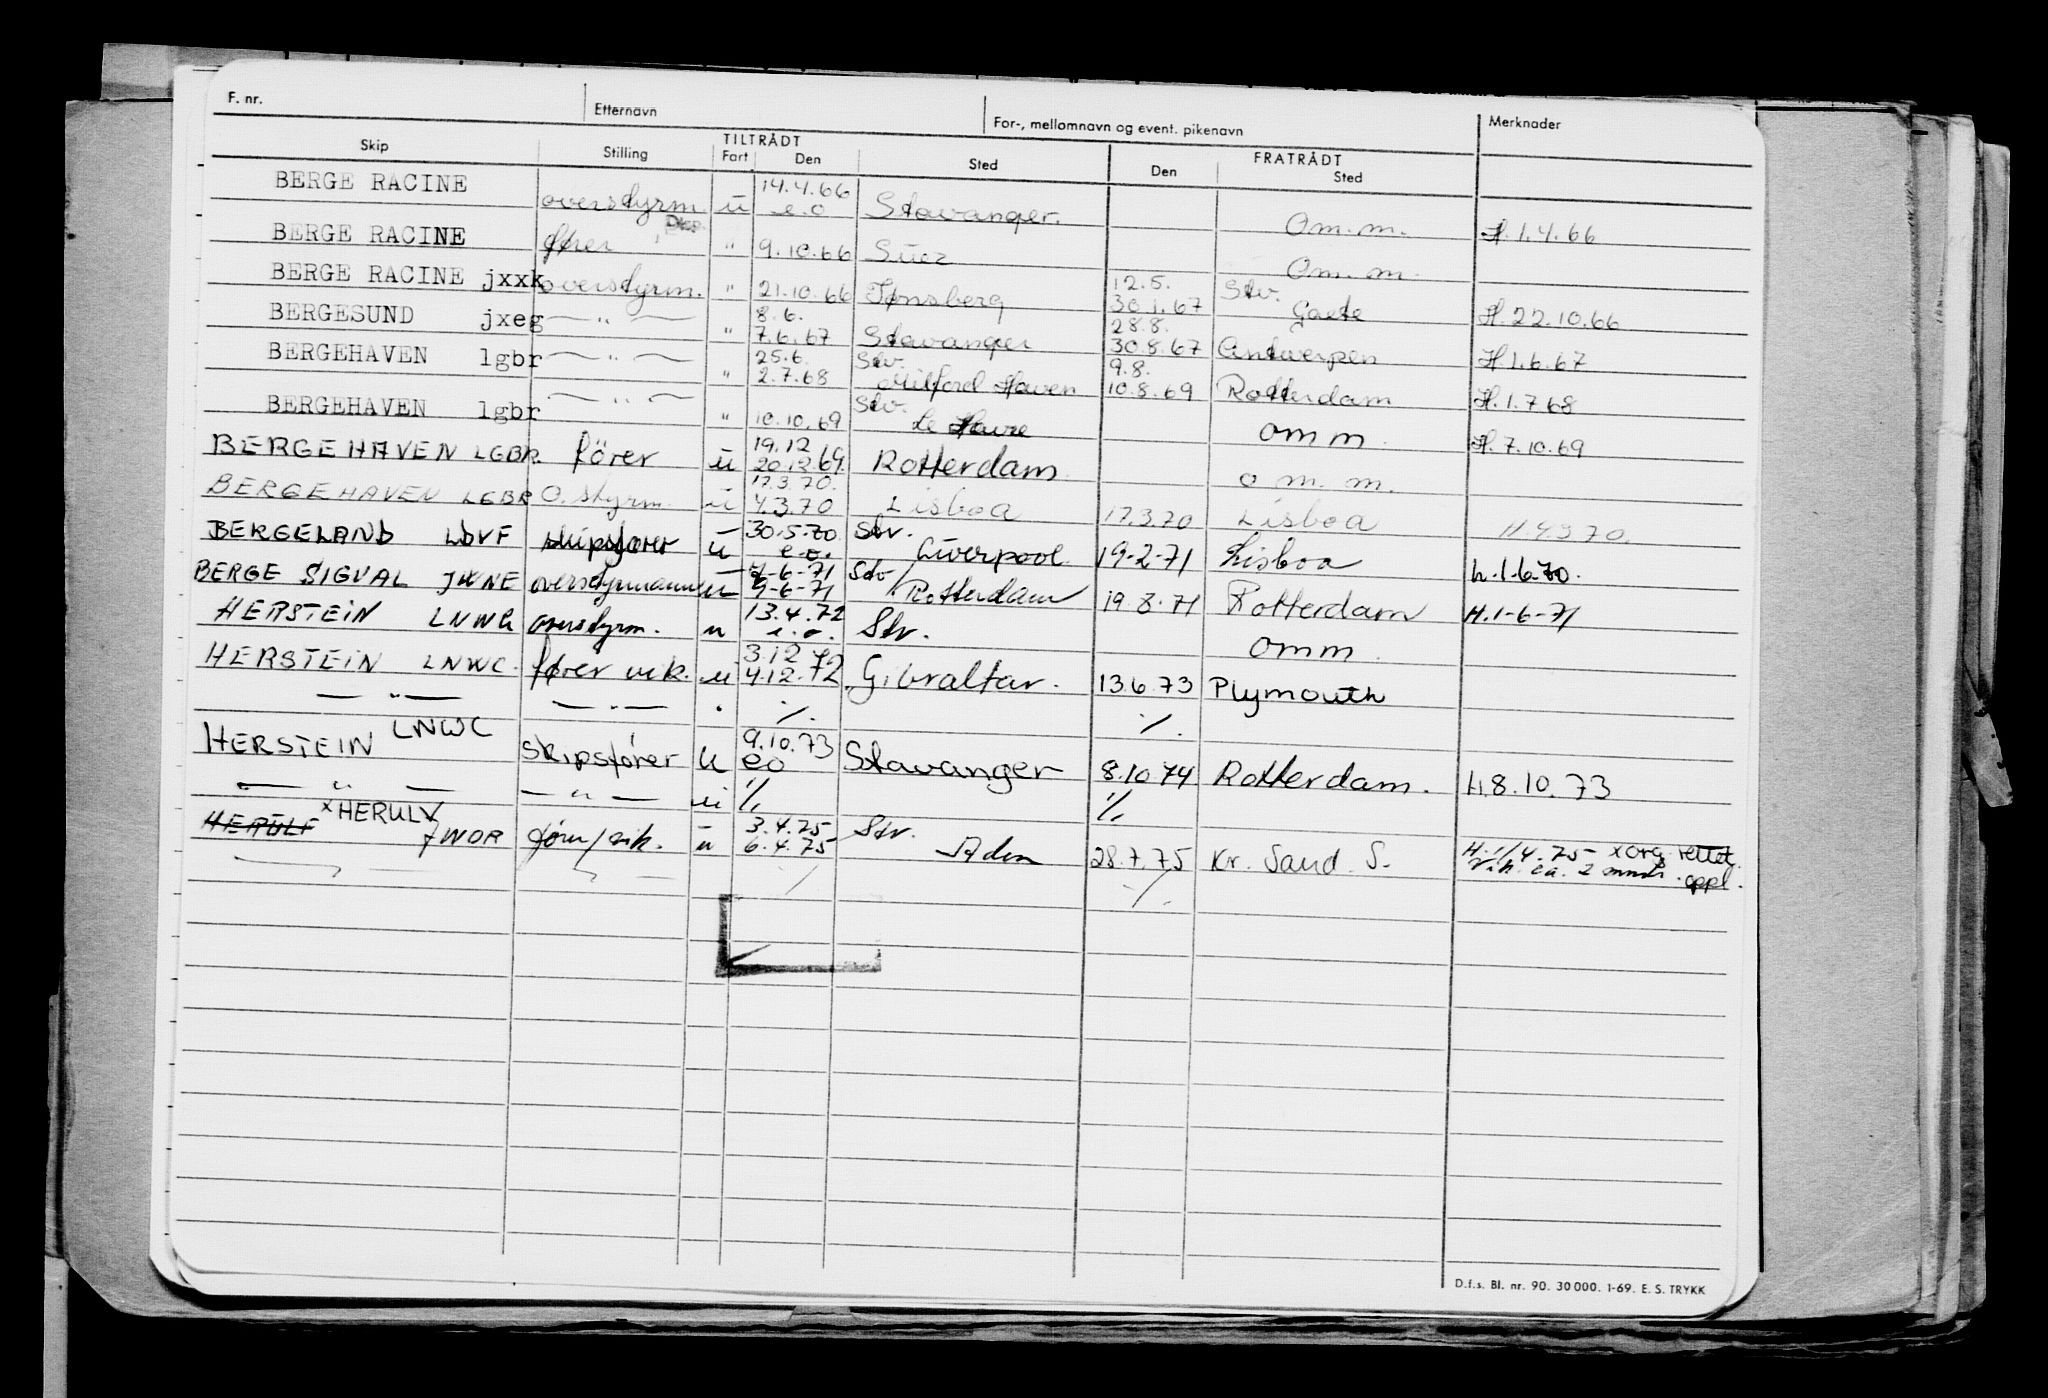 F. nr. Etternavn For-, mellomnavn og event. pikenavn Merknader
TILTRÅDT FRATRÅDT
Skip Stilling Fart Den Sted Den Sted
BERGE RACINE overstyrm. ü 14.4.66 e.o Stavanger. Om.m. H.1.4.66
BERGE RACINE fører Disp. " 9.10.66 Suez Om.m.
BERGE RACINE jxxk overstyrm. " 21.10.66 Tønsberg 12.5. 30.1.67 Stv. Gaeta H.22.10.66
BERGESUND jxeg — " — " 8.6. 7.6.67 Stavanger 28.8. 30.8.67 Antwerpen H 1.6.67
BERGEHAVEN lgbr — " — " 25.6. 2.7.68 Stv. Milford Haven 9.8. 10.8.69 Rotterdam H.1.7 68
BERGEHAVEN lgbr — " — " 10.10.69 Stv. Le Havre omm. H.7.10.69
BERGEHAVEN LGBR. förer ü 19.12 20.12.69. Rotterdam. o m. m.
BERGEHAVEN LGBR O. styrm. ü 17.3.70. 4.3.70 Lisboa 17.3.70 Lisboa H.4.3.70.
BERGELAND LDVF skipsfører ü 30.5.70 e.o. Stv. Liverpool 19-2-71 Lisboa h.1.6.70.
BERGE SIGVAL JXNE overstyrmann ü -6-71 9-6-71 Stv / Rotterdam 19.8.71 Rotterdam H.1-6-71
HERSTEIN LNWC overstyrm. u 13.4.72 e.o. Stv. omm.
HERSTEIN LNWC. fører vik. ü 3.12.72 4.12.72 Gibraltar. 13.6.73 Plymouth
— " — — " — " ./. ./.
HERSTEIN LNWC skipsfører u 9.10.73 eo Stavanger 8.10 74 Rotterdam. H.8.10.73
— " — — " — ü ./. ./.
HERULF x HERULV JWOR fører/vik. ü 3.4.75 6.4.75 Stv. Aden 28.7.75 Kr. Sand S. H.1/4.75 x org. rettet.
Vik. ca. 2 mndr. oppl.
— " — — " — ./. ./.
D.f.s. Bl. nr. 90. 30 000. 1-69. E. S. TRYKK